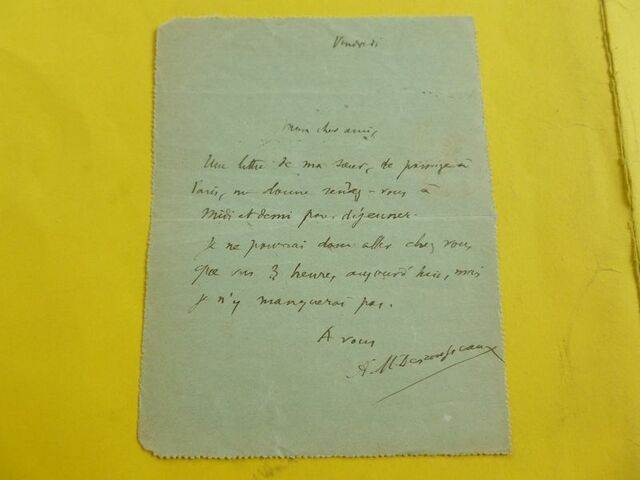 Vendredi
Mon cher ami,
Une lettre de ma sœur, de passage à
Paris, me donne rendez-vous à
midi et demi pour déjeuner.
Je ne pourrai donc aller chez vous
que vers 3 heures, aujourd'hui, mais
je n'y manquerai pas.
A vous
A.M. Desrousseaux